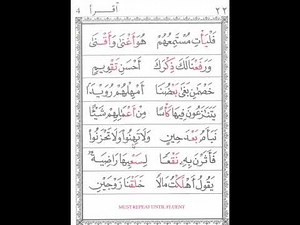 ٤ اقرأ ٢٢
فَلْيَأْتِ مُسْتَمِعُهُمْ هُوَ أَغْنَى وَأَقْنَى
وَرَفَعْنَا لَكَ ذِكْرَكَ أَحْسَنِ تَقْوِيمٍ
خَصْمَٰنِ بَغَى بَعْضُنَا أَمْهِلْهُمْ رُوَيْدًا
يَتَنَٰزَعُونَ فِيهَا كَأْسًا مِنْ أَعْمَٰلِهِمْ شَيْئًا
نَبَأَهُ بَعْدَ حِينٍ وَلَا تَهِنُوا وَلَا تَحْزَنُوا
فَأَثَرْنَ بِهِ نَقْعًا لِسَعْيِهَا رَاضِيَةٌ
يَقُولُ أَهْلَكْتُ مَالًا خَلَقْنَا زَوْجَيْنِ
MUST REPEAT UNTIL FLUENT